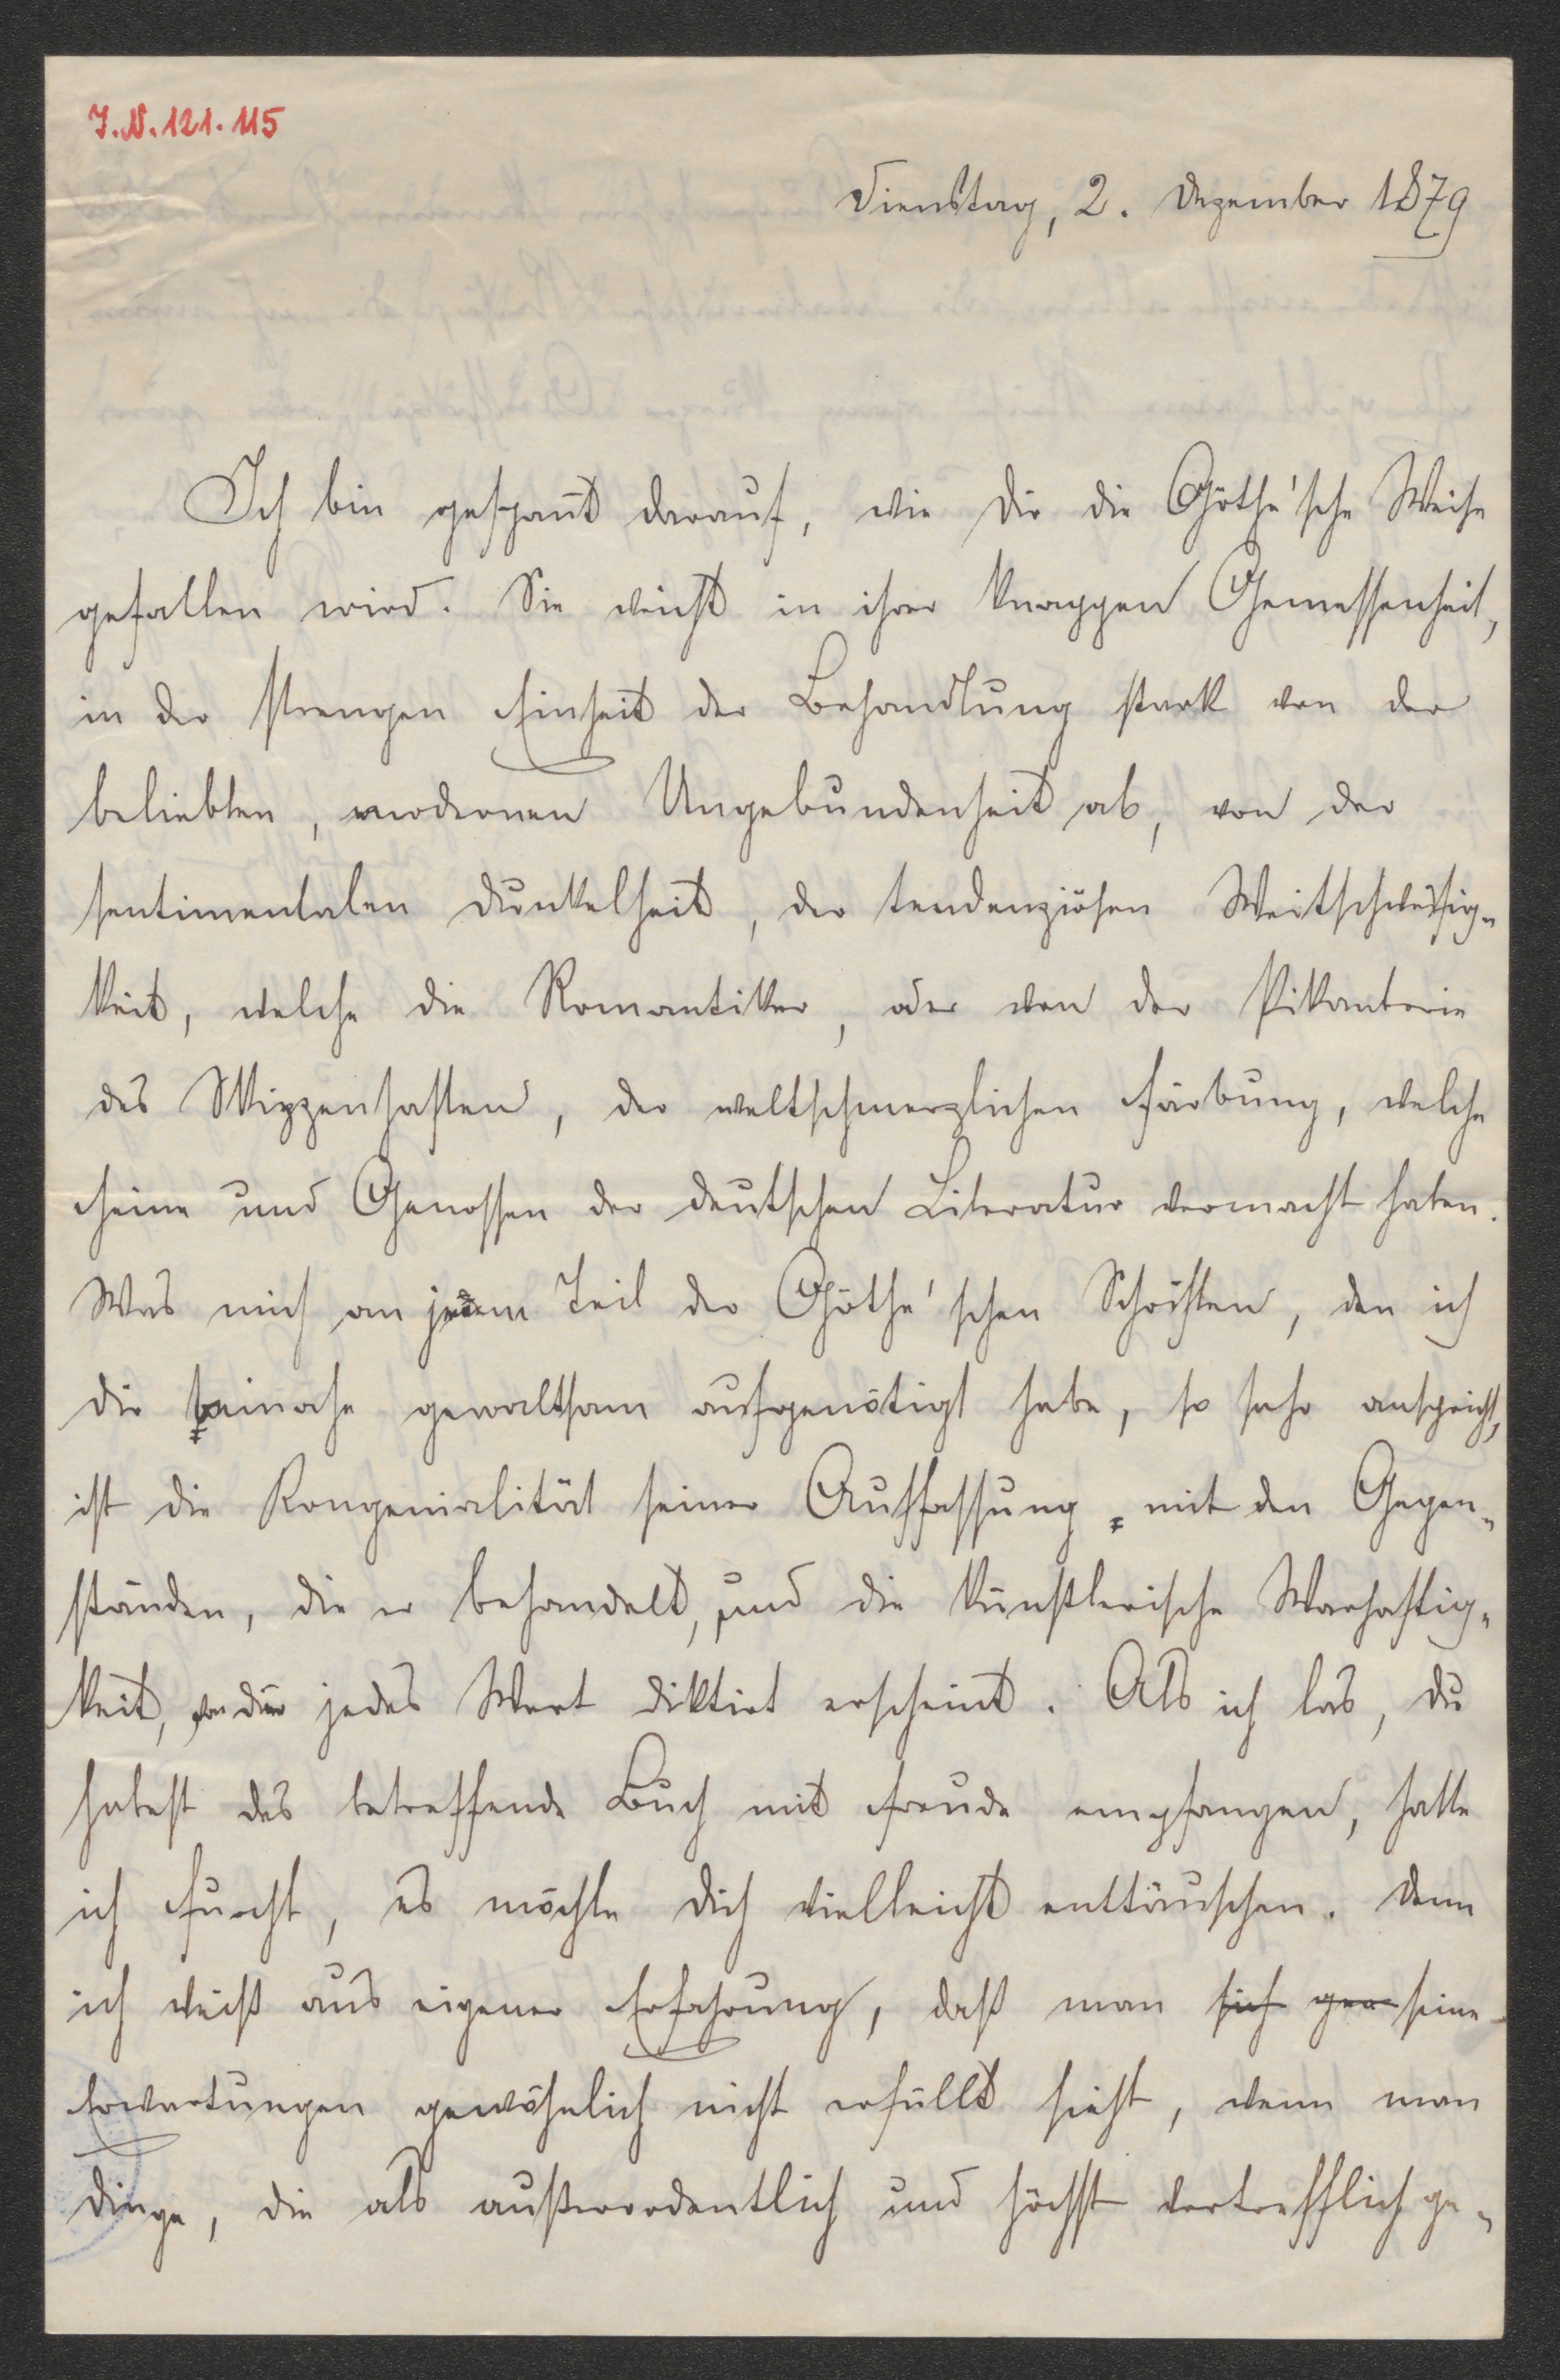 J.N. 121.115
Dienstag, 2. Dezember 1879
Ich bin gespañt darauf, wie Dir die Göthe'sche Weise
gefallen wird. Sie weicht in ihrer knappen Gemessenheit,
in der strengen Einheit der Behandlung stark von der
beliebten, modernen Ungebundenheit ab, von der
sentimentalen Dunkelheit, der tendenziösen Weitschweifig-
keit, welche die Romantiker, oder von der Pikanterie
des Skizzenhaften, der weltschmerzlichen Färbung, welche
Heine und Genossen der deutschen Literatur vermacht haben.
Was mich an jenem Teil der Göthe'schen Schriften, den ich
Dir beinahe gewaltsam aufgenötigt habe, so sehr anspricht,
ist die Kongenialität seiner Auffassung mit den Gegen-
ständen, die er behandelt, und die künstlerische Warhaftig-
keit, von der jedes Wort diktirt erscheint. Als ich las, Du
habest das betreffende Buch mit Freude empfangen, hatte
ich Furcht, es möchte Dich vielleicht enttäuschen. Denn
ich weiß aus eigener Erfahrung, daß man sich gern seine
Erwartungen gewöhnlich nicht erfüllt sieht, wenn man
Dinge, die als außerordentlich und höchst vortrefflich ge-